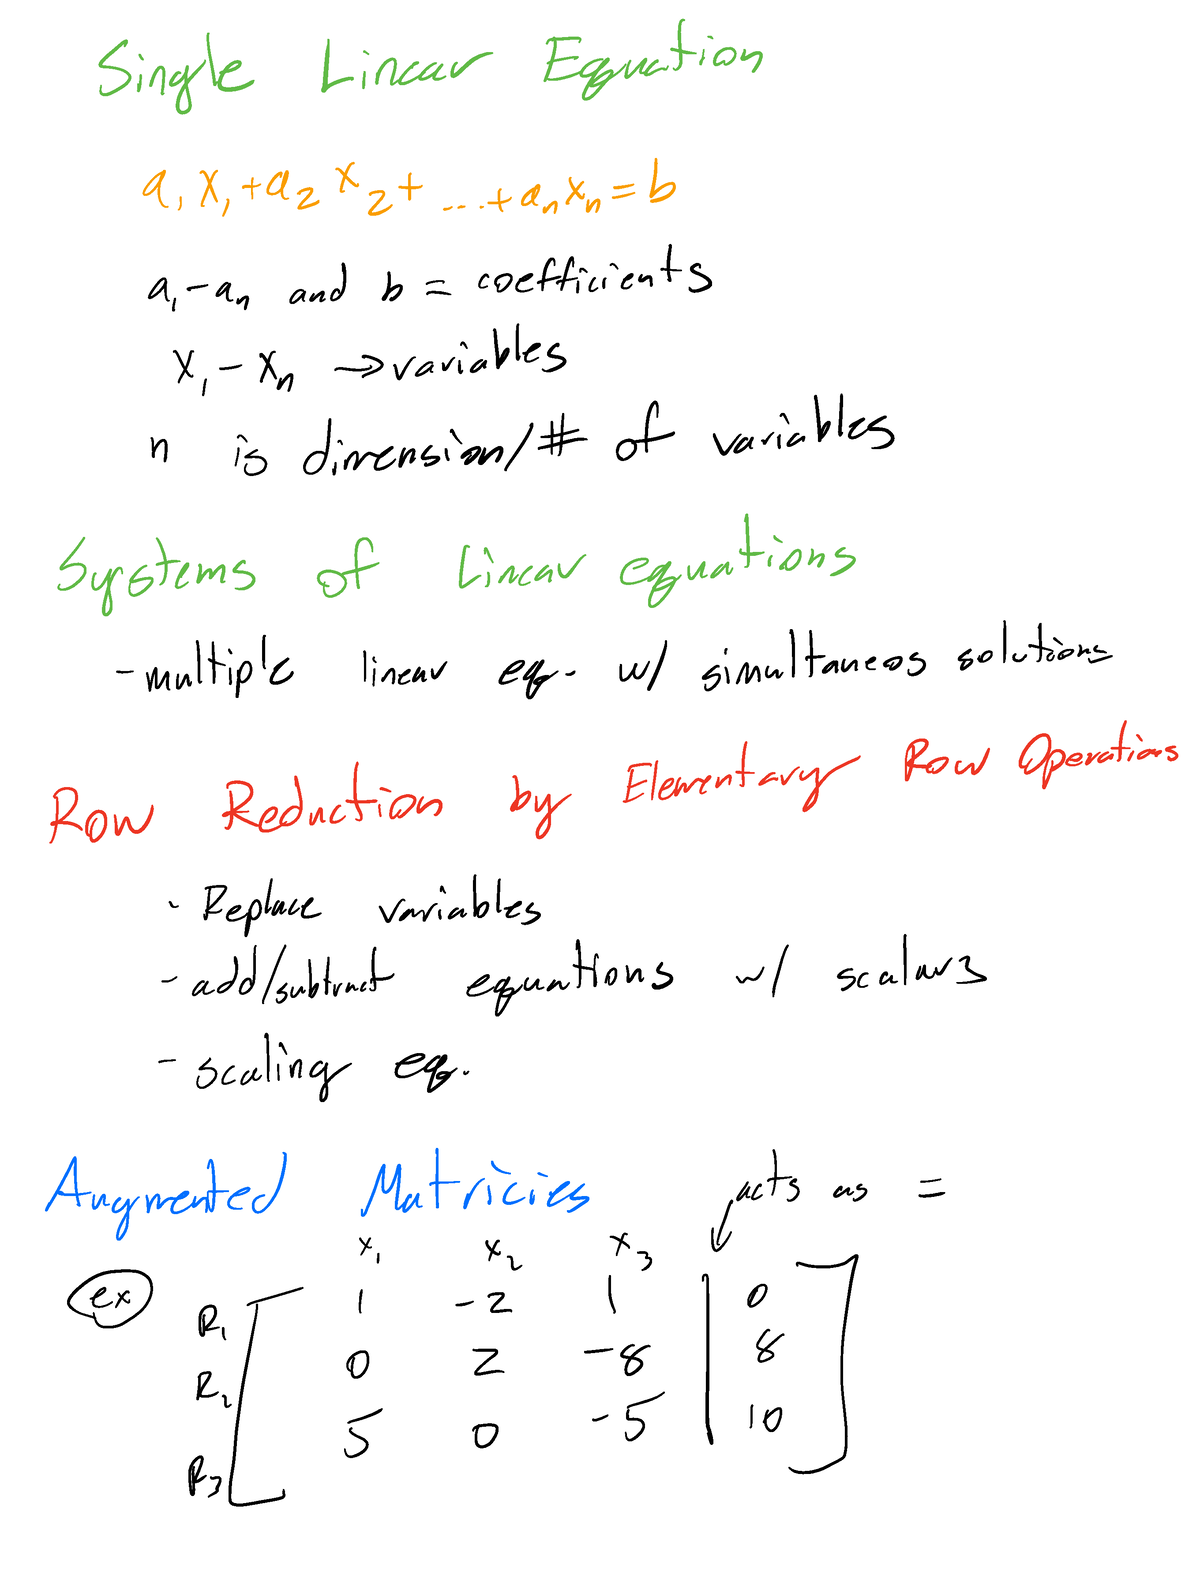 Single Linear Equation
a₁x₁+a₂x₂+ ...+aₙxₙ=b
a₁-aₙ and b = coefficients
x₁-xₙ →variables
n is dimension/# of variables
Systems of Linear equations
-multiple linear eq. w/ simultaneos solutions
Row Reduction by Elementary Row Operations
- Replace variables
- add/subtract equations w/ scalars
- scaling eq.
Augmented Matricies
acts as =
x₁ x₂ x₃
ex R₁ 1 -2 1 | 0
R₂ 0 2 -8 | 8
R₃ 5 0 -5 | 10